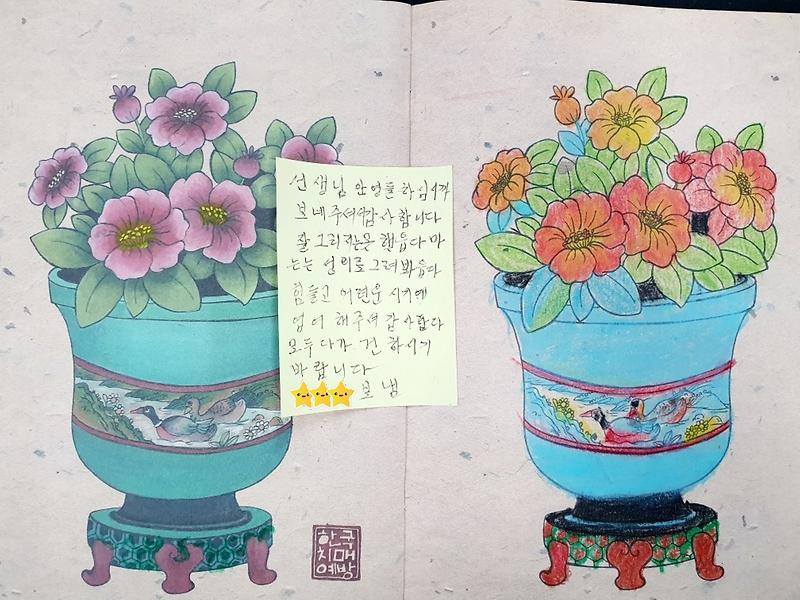 선생님 안영들 하심니까
보네주셔서 감사합니다
잘 그리지는못 했읍다 마
는는 성의로 그려봐읍다
힘들고 어련운 시기에
업어 해주셔 감사합다
모두 다가 건 하시기
바랍니다
보냄
한국
치매
예방